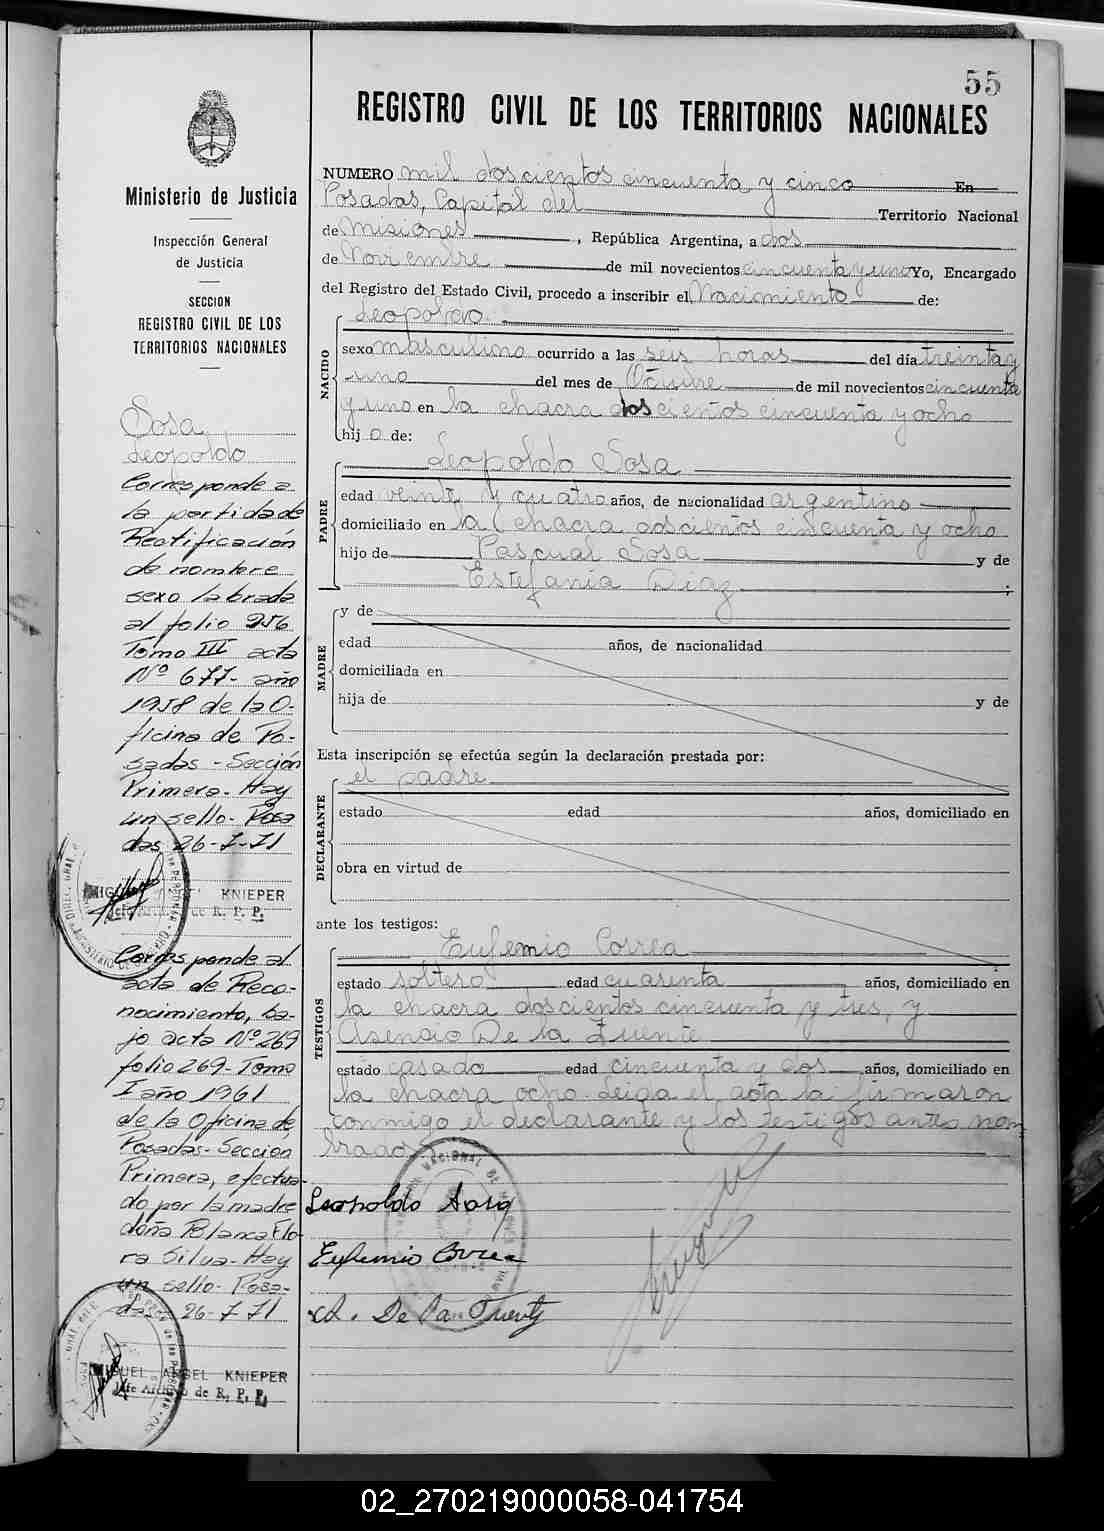 55
REGISTRO CIVIL DE LOS TERRITORIOS NACIONALES
Ministerio de Justicia
Inspección General
de Justicia
SECCION
REGISTRO CIVIL DE LOS
TERRITORIOS NACIONALES
Sosa
Leopoldo
Corresponde a
la partida de
Rectificación
de nombre
sexo labrada
al folio 256
Tomo III acta
Nº 677- año
1958 de la O-
ficina de Po-
sadas - Sección
Primera - Hay
un sello - Posa
das 26-7-71
KNIEPER
de R. P. P.
Corresponde al
acta de Reco-
nocimiento, ba-
jo acta Nº 269
folio 269 - Tomo
I año 1961
de la Oficina de
Posadas - Sección
Primera, efectua-
do por la madre
doña Blanca Flo-
ra Silva - Hay
un sello - Posa-
das 26-7-71
MIGUEL ANGEL KNIEPER
Jefe Archivo de R. P. P.
NUMERO mil doscientos cincuenta y cinco En
Posadas, Capital del Territorio Nacional
de Misiones, República Argentina, a dos
de Noviembre de mil novecientos cincuenta y uno Yo, Encargado
del Registro del Estado Civil, procedo a inscribir el Nacimiento de:
Leopoldo
NACIDO
sexo masculino ocurrido a las seis horas del día treinta y
uno del mes de Octubre de mil novecientos cincuenta
y uno en la chacra doscientos cincuenta y ocho
hijo de:
PADRE
Leopoldo Sosa
edad veinte y cuatro años, de nacionalidad argentino
domiciliado en la chacra doscientos cincuenta y ocho
hijo de Pascual Sosa y de
Estefanía Diaz;
MADRE
y de
edad años, de nacionalidad
domiciliada en
hija de y de
Esta inscripción se efectúa según la declaración prestada por:
el padre
DECLARANTE
estado edad años, domiciliado en
obra en virtud de
ante los testigos:
TESTIGOS
Eufemio Correa
estado soltero edad cuarenta años, domiciliado en
la chacra doscientos cincuenta y tres, y
Asencio De la Fuente
estado casado edad cincuenta y dos años, domiciliado en
la chacra ocho. Leida el acta la firmaron
conmigo el declarante y los testigos antes nom
brados
Leopoldo Sosa
Eufemio Correa
A. De la Fuente
02_270219000058-041754